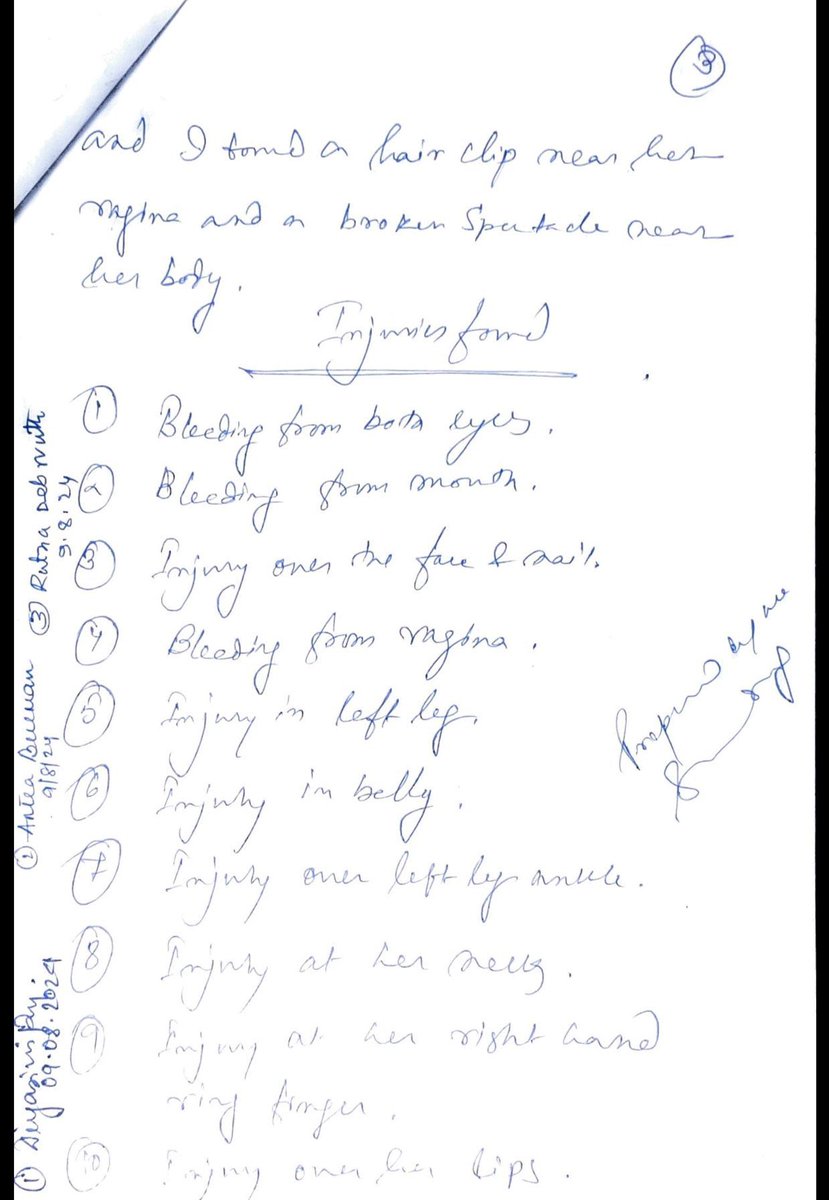 3
and I found a hair clip near her
vagina and a broken Spectacle near
her body.
Injuries found
① Bleeding from both eyes.
② Bleeding from mouth.
③ Injury over the face & nail.
④ Bleeding from vagina.
⑤ Injury in left leg.
⑥ Injury in belly.
⑦ Injury over left leg ankle.
⑧ Injury at her neck.
⑨ Injury at her right hand
ring finger.
⑩ Injury over her lips.
Prepared by me
①
09.08.2024
②
9/8/24
③
9.8.24